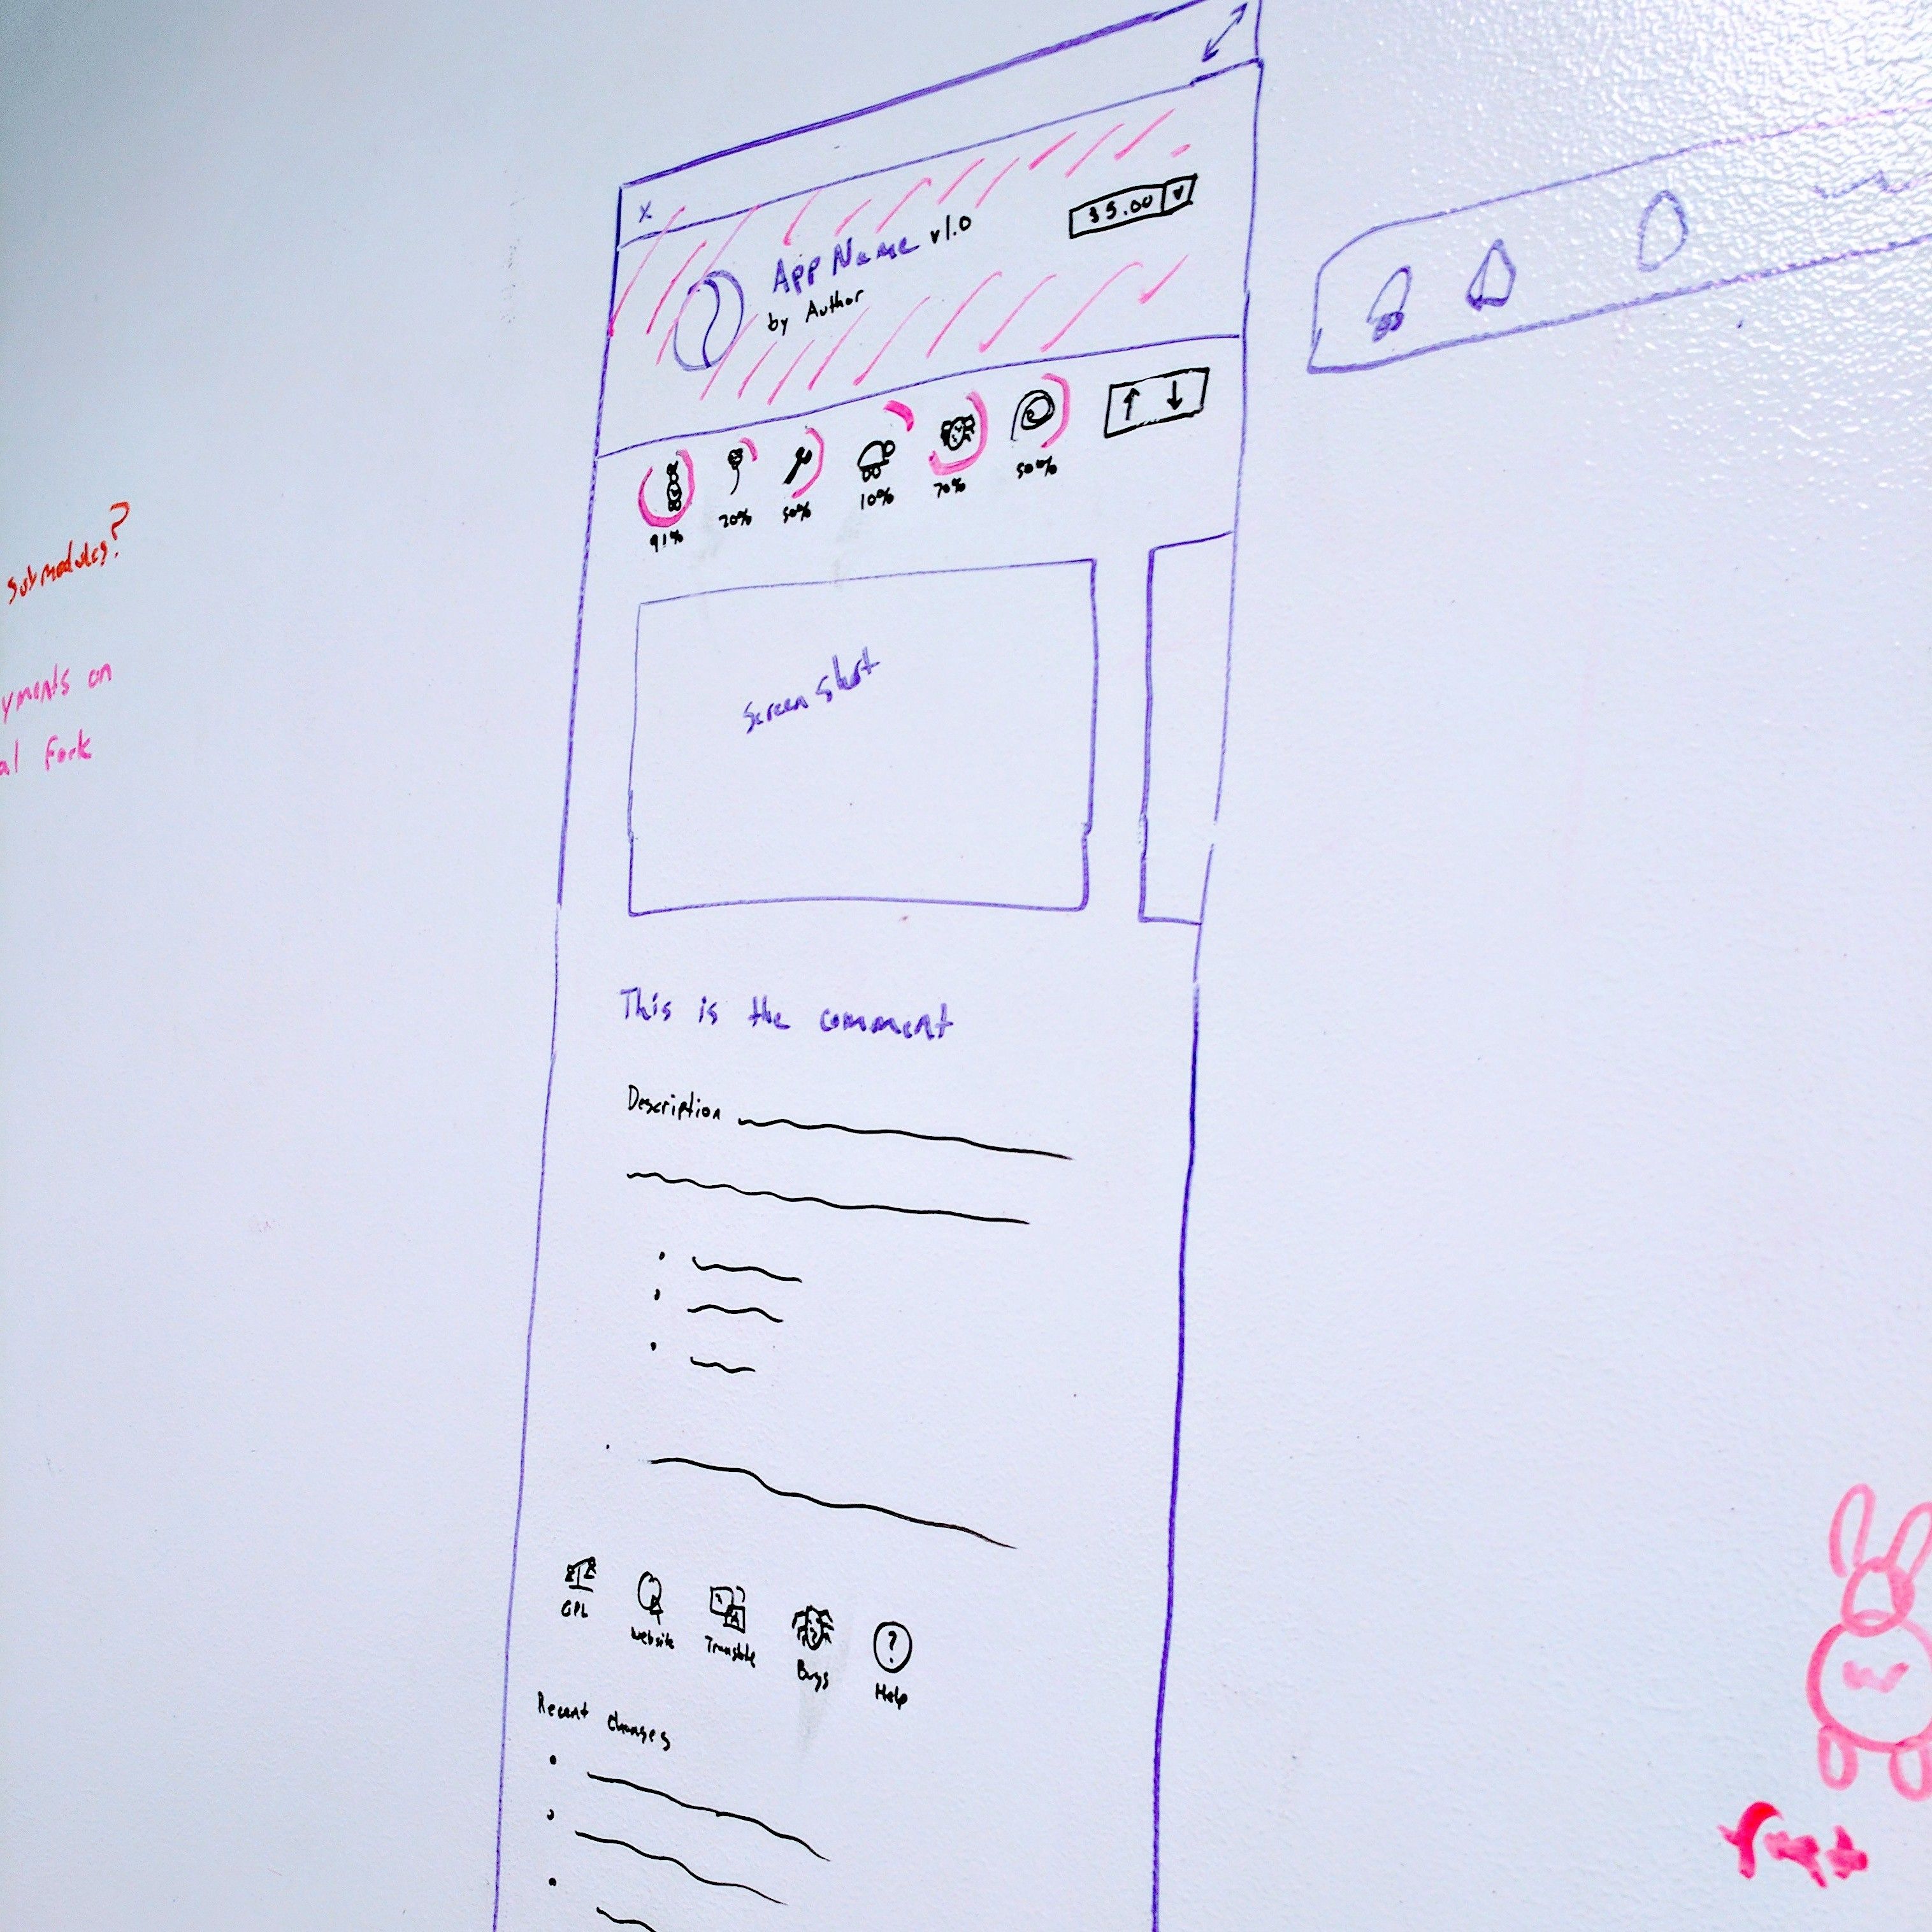 submodules?
yments on
al Fork
x
App Name v1.0
by Author
$5.00
91%
20%
50%
10%
70%
50%
Screen Shot
This is the comment
Description
GPL
Website
Translate
Bugs
Help
Recent changes